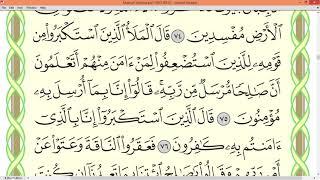 ٱلۡأَرۡضِ مُفۡسِدِينَ ٧٤ قَالَ ٱلۡمَلَأُ ٱلَّذِينَ ٱسۡتَكۡبَرُواْ مِن
قَوۡمِهِۦ لِلَّذِينَ ٱسۡتُضۡعِفُواْ لِمَنۡ ءَامَنَ مِنۡهُمۡ أَتَعۡلَمُونَ
أَنَّ صَٰلِحٗا مُّرۡسَلٞ مِّن رَّبِّهِۦۚ قَالُوٓاْ إِنَّا بِمَآ أُرۡسِلَ بِهِۦ
مُؤۡمِنُونَ ٧٥ قَالَ ٱلَّذِينَ ٱسۡتَكۡبَرُوٓاْ إِنَّا بِٱلَّذِيٓ
ءَامَنتُم بِهِۦ كَٰفِرُونَ ٧٦ فَعَقَرُواْ ٱلنَّاقَةَ وَعَتَوۡاْ عَنۡ
أَمۡرِ رَبِّهِمۡ وَقَالُواْ يَٰصَٰلِحُ ٱئۡتِنَا بِمَا تَعِدُنَآ إِن كُنتَ